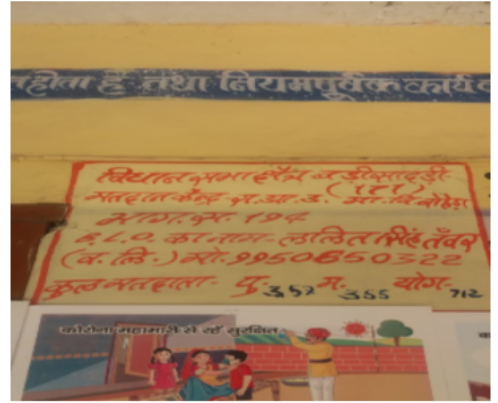 होता है तथा नियमपूर्वक कार्य
विधानसभा क्षेत्र बडीसादड़ी-
मतदान केन्द्र रा.आ.उ. मा. वि.
(171)
भाग सं. 194
B.L.O. का नाम- ललित सिंह तँवर
(व. लि.) मो. 9950650322
कुल मतदाता- पु. 357 म. 355 योग- 712
कोरोना महामारी से रहें सुरक्षित